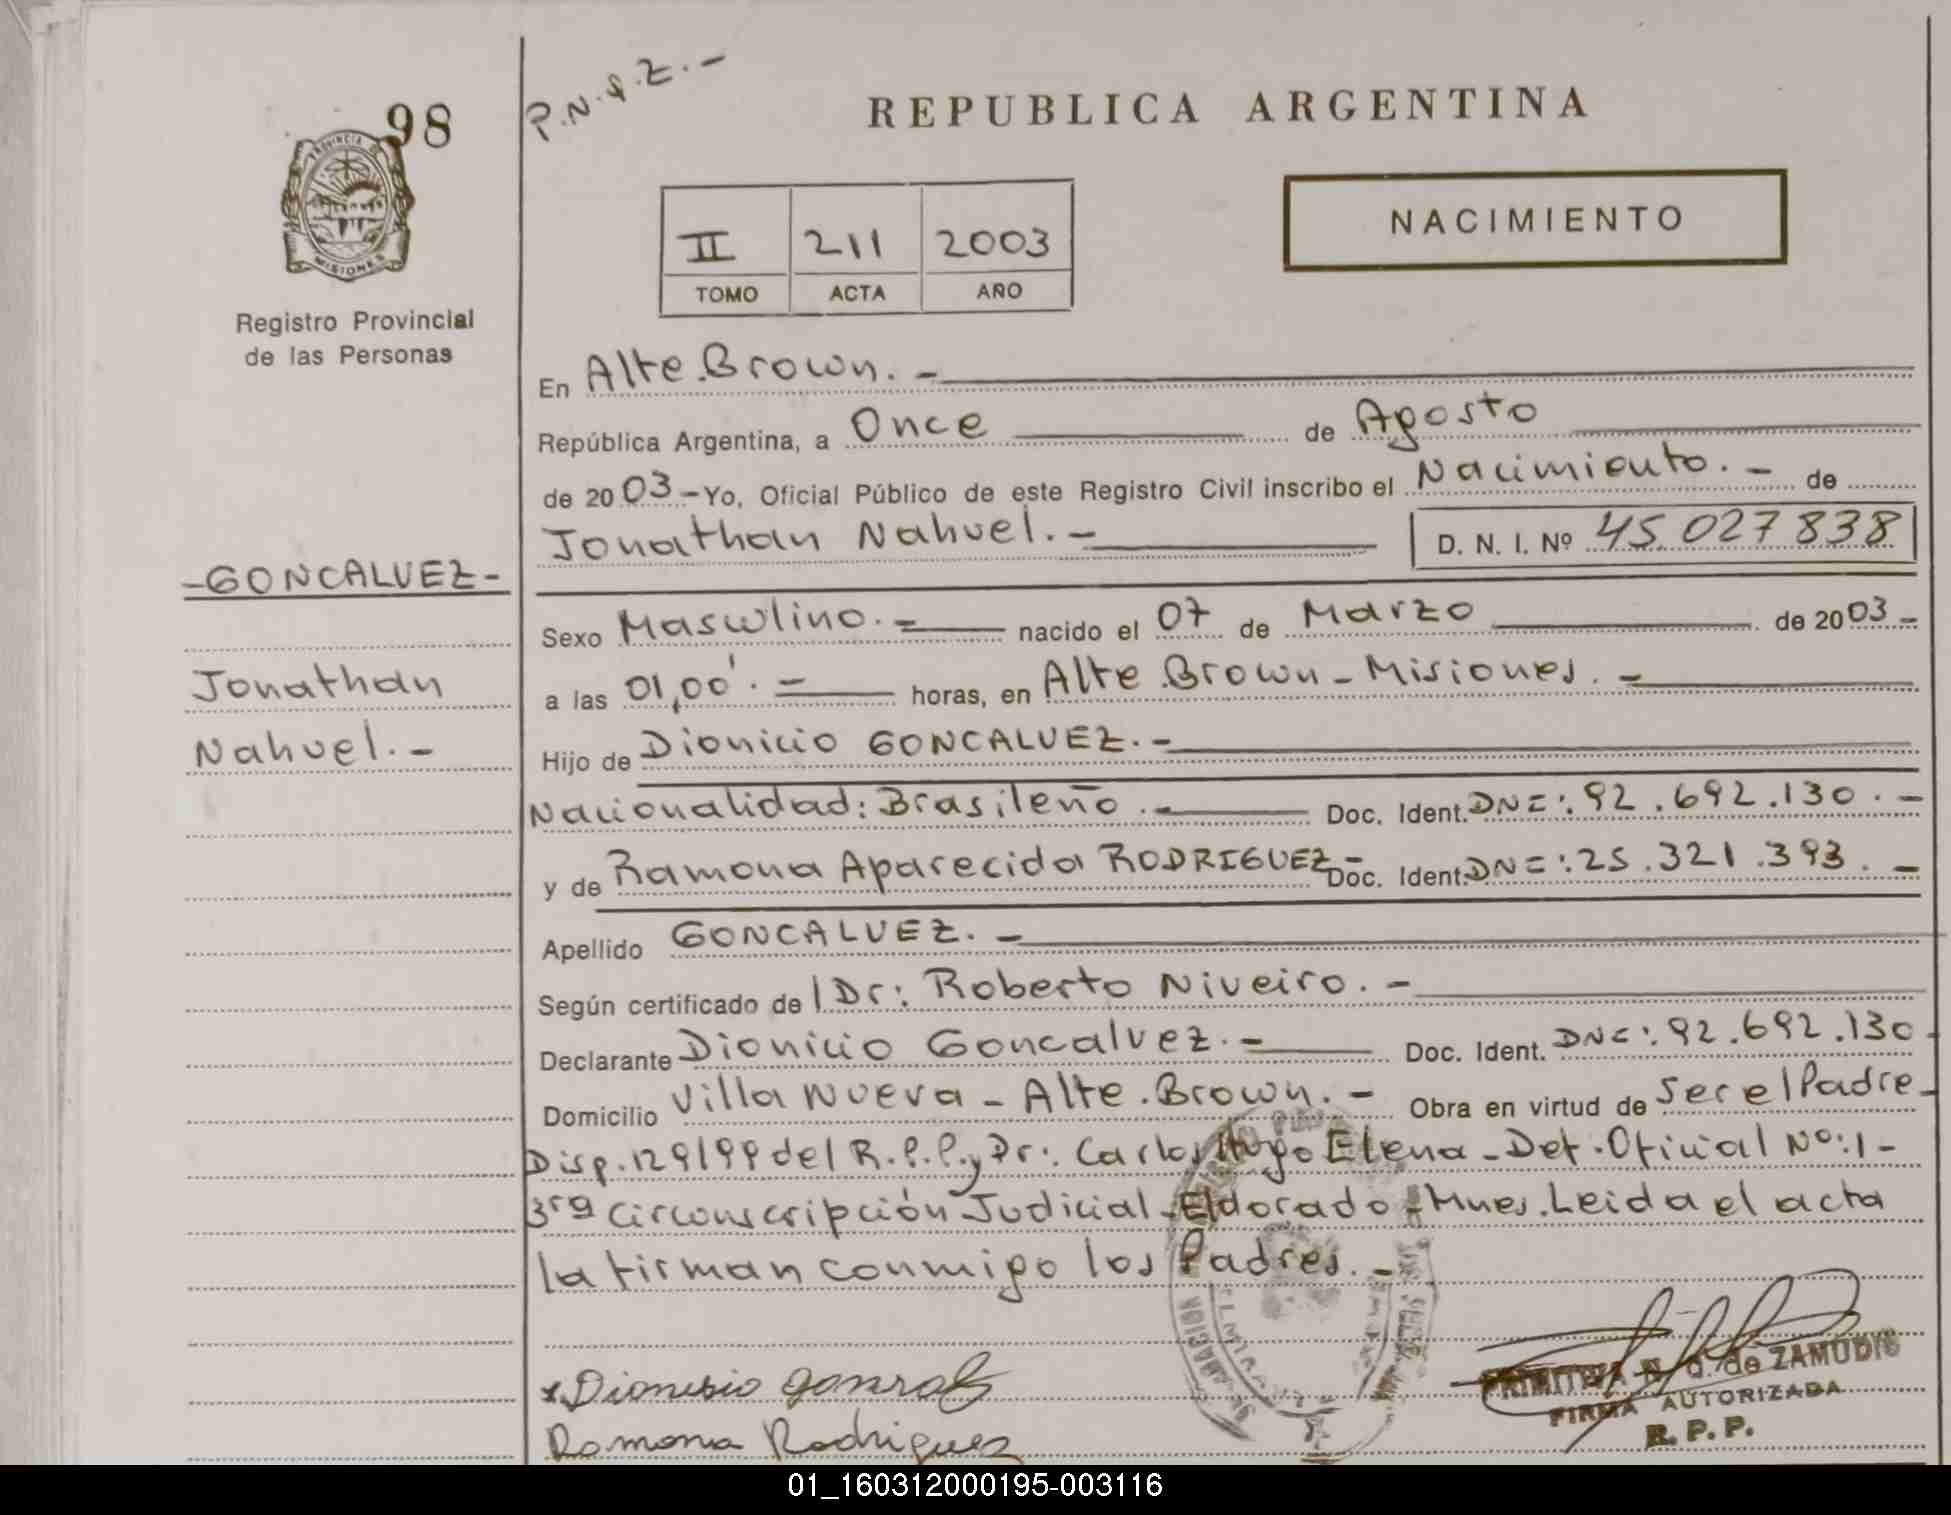 98
P.N.q.Z.-
REPUBLICA ARGENTINA
PROVINCIA DE
MISIONES
Registro Provincial
de las Personas
II 211 2003
TOMO ACTA AÑO
NACIMIENTO
En Alte.Brown.-
República Argentina, a Once de Agosto
de 2003-Yo, Oficial Público de este Registro Civil inscribo el Nacimiento.- de
Jonathan Nahuel.- D. N. I. Nº 45.027838
-GONCALVEZ-
Jonathan
Nahuel.-
Sexo Masculino.- nacido el 07 de Marzo de 2003-
a las 01,00'.- horas, en Alte.Brown-Misiones.-
Hijo de Dionicio GONCALVEZ.-
Nacionalidad: Brasileño.- Doc. Ident. DNI: 92.692.130.-
y de Ramona Aparecida RODRIGUEZ- Doc. Ident. DNI: 25.321.393.-
Apellido GONCALVEZ.-
Según certificado de Dr: Roberto Niveiro.-
Declarante Dionicio Goncalvez.- Doc. Ident. DNI: 92.692.130-
Domicilio Villa Nueva-Alte.Brown.- Obra en virtud de ser el Padre-
Disp.129/99 del R.P.P.y Dr: Carlos Hugo Elena-Def.Oficial Nº:1-
3ra Circunscripción Judicial-Eldorado-Mnes.Leida el acta
la firman conmigo los Padres.-
x Dionisio
Ramona Rodriguez
PRIMITIVA N. G. de ZAMUDIO
FIRMA AUTORIZADA
R. P. P.
01_160312000195-003116